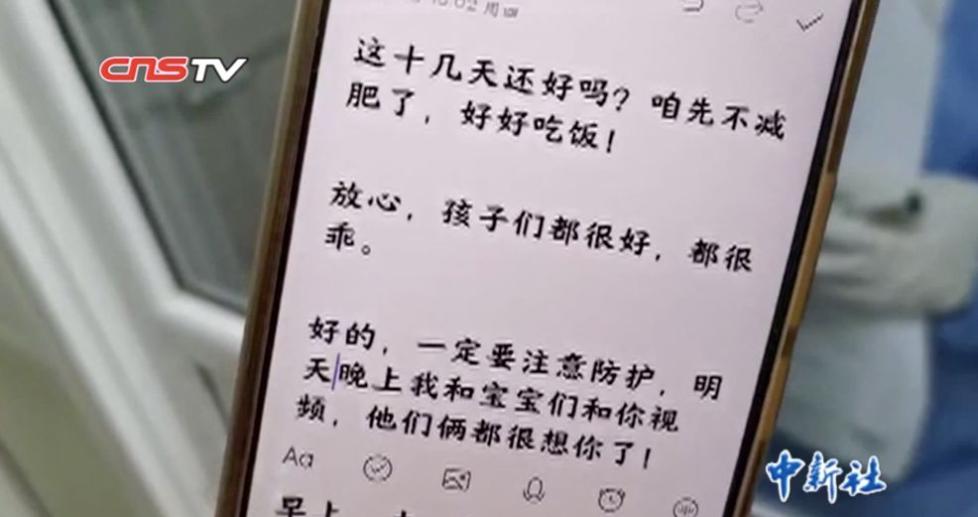 CNSTV
周四
这十几天还好吗？咱先不减
肥了，好好吃饭！
放心，孩子们都很好，都很
乖。
好的，一定要注意防护，明
天晚上我和宝宝们和你视
频，他们俩都很想你了！
Aa
早上
中新社